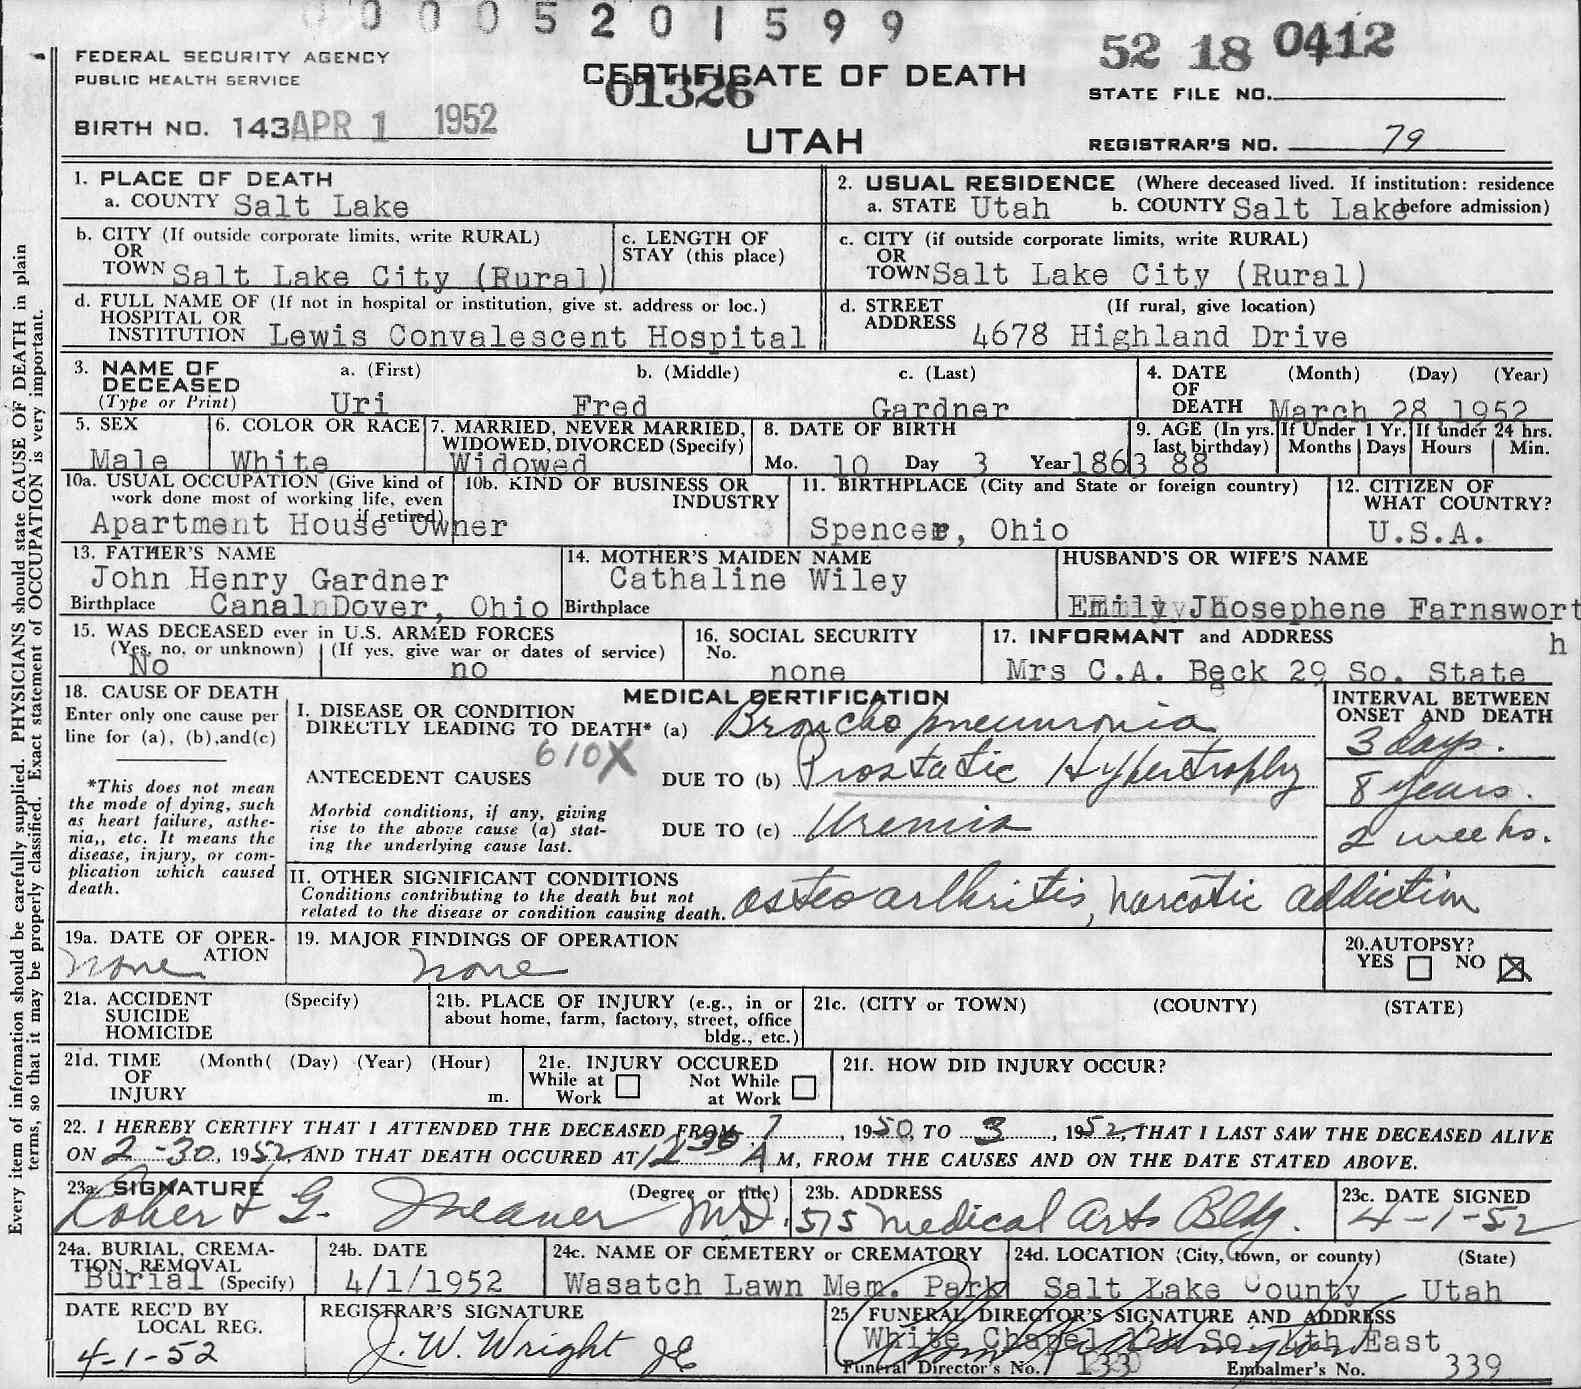 0005201599
FEDERAL SECURITY AGENCY
PUBLIC HEALTH SERVICE
CERTIFICATE OF DEATH
01326
UTAH
52 18 0412
STATE FILE NO.
BIRTH NO. 143 APR 1 1952
REGISTRAR'S NO. 79
Every item of information should be carefully supplied. PHYSICIANS should state CAUSE OF DEATH in plain
terms, so that it may be properly classified. Exact statement of OCCUPATION is very important.
1. PLACE OF DEATH
a. COUNTY Salt Lake
2. USUAL RESIDENCE (Where deceased lived. If institution: residence
a. STATE Utah b. COUNTY Salt Lake before admission)
b. CITY (If outside corporate limits, write RURAL)
OR
TOWN Salt Lake City (Rural)
c. LENGTH OF
STAY (this place)
c. CITY (if outside corporate limits, write RURAL)
OR
TOWN Salt Lake City (Rural)
d. FULL NAME OF (If not in hospital or institution, give st. address or loc.)
HOSPITAL OR
INSTITUTION Lewis Convalescent Hospital
d. STREET (If rural, give location)
ADDRESS 4678 Highland Drive
3. NAME OF DECEASED
(Type or Print)
a. (First) b. (Middle) c. (Last)
Uri Fred Gardner
4. DATE (Month) (Day) (Year)
OF
DEATH March 28 1952
5. SEX
Male
6. COLOR OR RACE
White
7. MARRIED, NEVER MARRIED,
WIDOWED, DIVORCED (Specify)
Widowed
8. DATE OF BIRTH
Mo. 10 Day 3 Year 1863
9. AGE (In yrs. last birthday)
88
If Under 1 Yr.
Months Days
If under 24 hrs.
Hours Min.
10a. USUAL OCCUPATION (Give kind of
work done most of working life, even
if retired)
Apartment House Owner
10b. KIND OF BUSINESS OR
INDUSTRY
11. BIRTHPLACE (City and State or foreign country)
Spencer, Ohio
12. CITIZEN OF
WHAT COUNTRY?
U.S.A.
13. FATHER'S NAME
John Henry Gardner
Birthplace Canal Dover, Ohio
14. MOTHER'S MAIDEN NAME
Cathaline Wiley
Birthplace
HUSBAND'S OR WIFE'S NAME
Emily Jhosephene Farnsworth
15. WAS DECEASED ever in U.S. ARMED FORCES
(Yes, no, or unknown) (If yes, give war or dates of service)
No no
16. SOCIAL SECURITY
No.
none
17. INFORMANT and ADDRESS
Mrs C.A. Beck 29 So. State
18. CAUSE OF DEATH
Enter only one cause per
line for (a), (b), and (c)
*This does not mean
the mode of dying, such
as heart failure, asthe-
nia,, etc. It means the
disease, injury, or com-
plication which caused
death.
MEDICAL CERTIFICATION
I. DISEASE OR CONDITION
DIRECTLY LEADING TO DEATH* (a) Bronchopneumonia
610X
ANTECEDENT CAUSES
DUE TO (b) Prostatic Hypertrophy
Morbid conditions, if any, giving
rise to the above cause (a) stat-
ing the underlying cause last.
DUE TO (c) Uremia
INTERVAL BETWEEN
ONSET AND DEATH
3 days.
8 years.
2 weeks.
II. OTHER SIGNIFICANT CONDITIONS
Conditions contributing to the death but not
related to the disease or condition causing death.
osteo arthritis, narcotic addiction
19a. DATE OF OPER-
ATION
none
19. MAJOR FINDINGS OF OPERATION
none
20. AUTOPSY?
YES NO
21a. ACCIDENT (Specify)
SUICIDE
HOMICIDE
21b. PLACE OF INJURY (e.g., in or
about home, farm, factory, street, office
bldg., etc.)
21c. (CITY or TOWN) (COUNTY) (STATE)
21d. TIME (Month( (Day) (Year) (Hour)
OF
INJURY m.
21e. INJURY OCCURED
While at Work Not While at Work
21f. HOW DID INJURY OCCUR?
22. I HEREBY CERTIFY THAT I ATTENDED THE DECEASED FROM 7, 1950, TO 3, 1952, THAT I LAST SAW THE DECEASED ALIVE
ON 2-30, 1952, AND THAT DEATH OCCURED AT 12 30 A M, FROM THE CAUSES AND ON THE DATE STATED ABOVE.
23a. SIGNATURE (Degree or title)
Robert G. M.D.
23b. ADDRESS
515 Medical Arts Bldg.
23c. DATE SIGNED
4-1-52
24a. BURIAL, CREMA-
TION, REMOVAL
Burial (Specify)
24b. DATE
4/1/1952
24c. NAME OF CEMETERY or CREMATORY
Wasatch Lawn Mem. Park
24d. LOCATION (City, town, or county) (State)
Salt Lake County Utah
DATE REC'D BY
LOCAL REG.
4-1-52
REGISTRAR'S SIGNATURE
J. W. Wright
25 FUNERAL DIRECTOR'S SIGNATURE AND ADDRESS
White Chapel So. East
Funeral Director's No. 133 Embalmer's No. 339